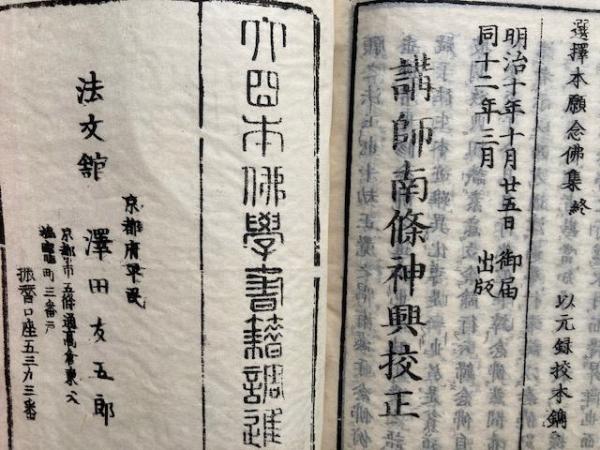 選擇本願念佛集終
以元録挍本鐫
明治十年十月廿五日御届
同十二年三月 出版
講師南條神興挍正
大日本佛學書籍調進
京都府平民
法文舘 澤田友五郎
京都市五條通高倉東入
町三番戸
振替口座